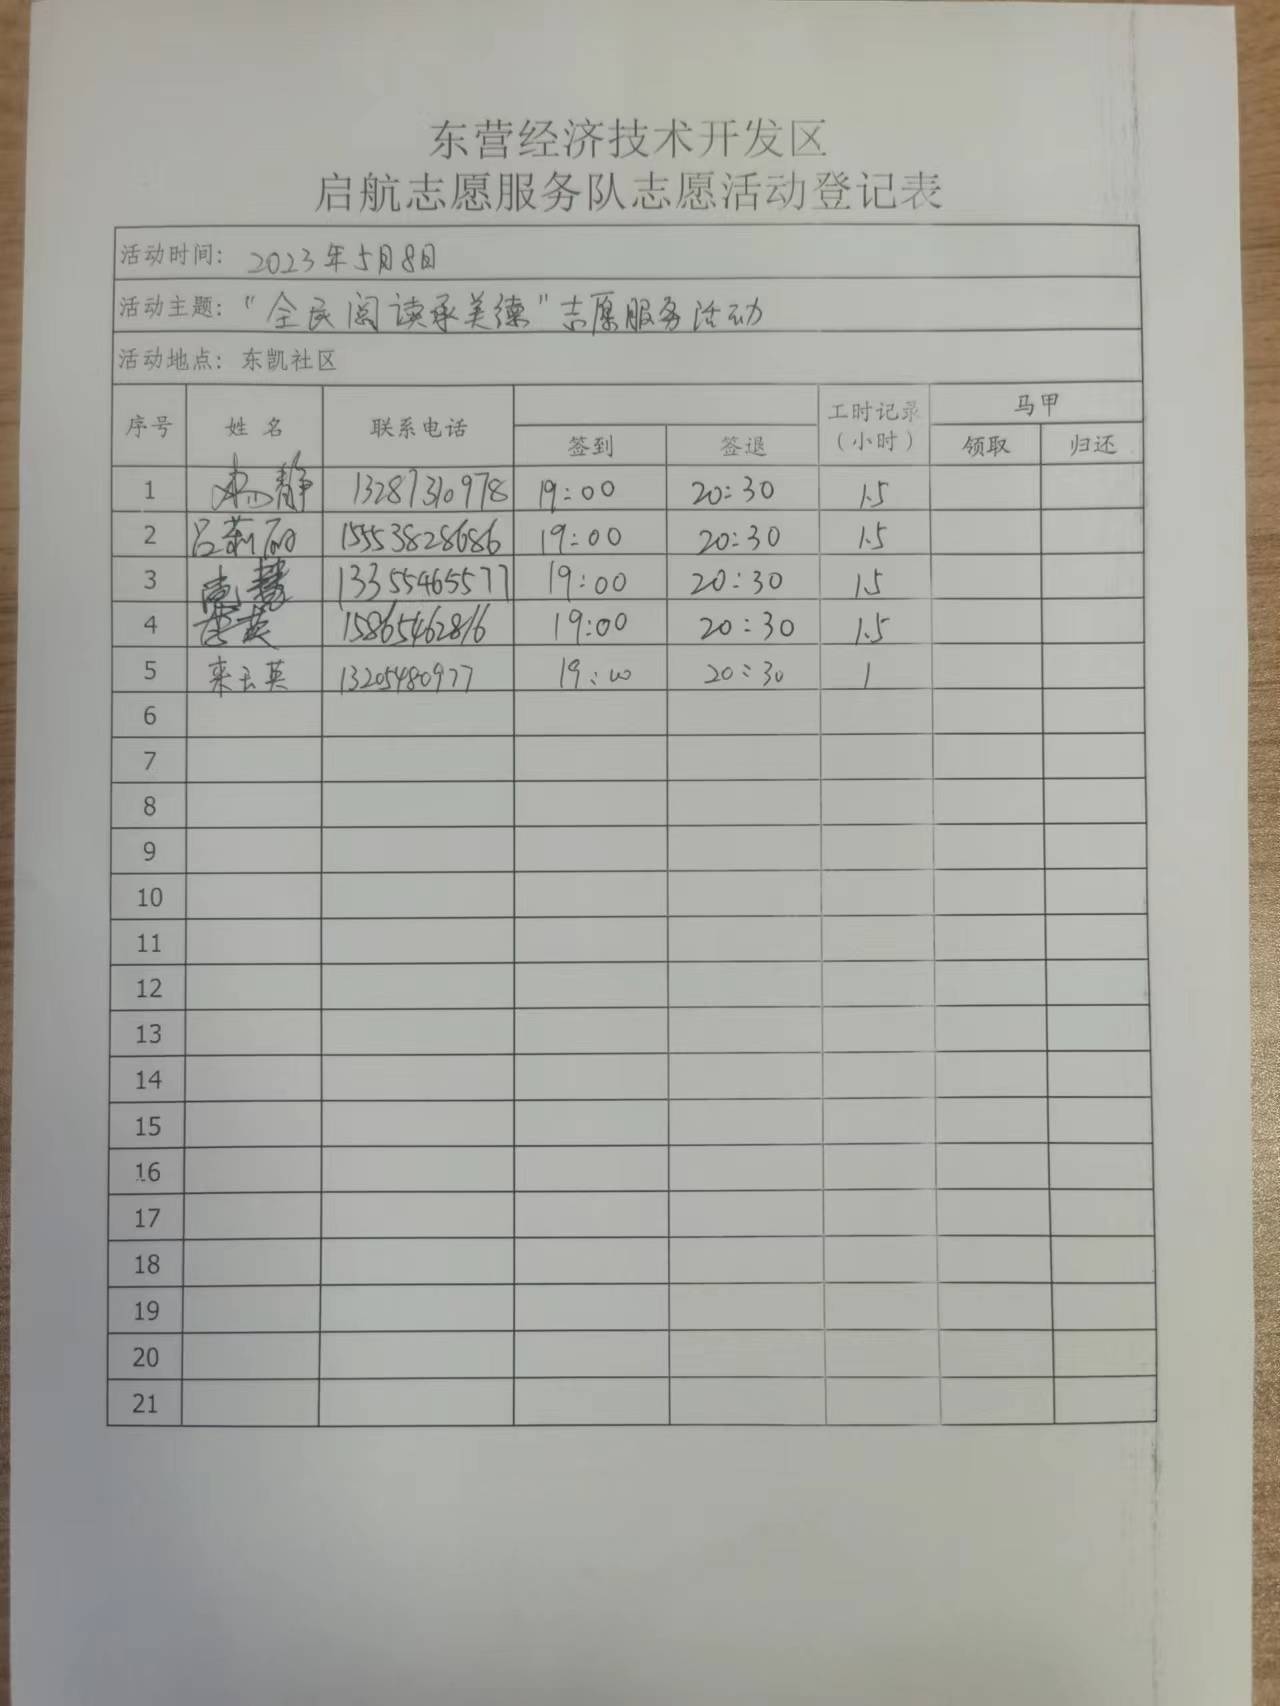 东营经济技术开发区
启航志愿服务队志愿活动登记表
活动时间: 2023年5月8日
活动主题: "全民阅读承美德"志愿服务活动
活动地点: 东凯社区
序号 姓名 联系电话 签到 签退 工时记录(小时) 马甲 领取 归还
1 静 13287310978 19:00 20:30 1.5
2 吕莉丽 15553828686 19:00 20:30 1.5
3 慧 13355465577 19:00 20:30 1.5
4 李英 15865462816 19:00 20:30 1.5
5 来云英 13205480977 19:00 20:30 1
6
7
8
9
10
11
12
13
14
15
16
17
18
19
20
21